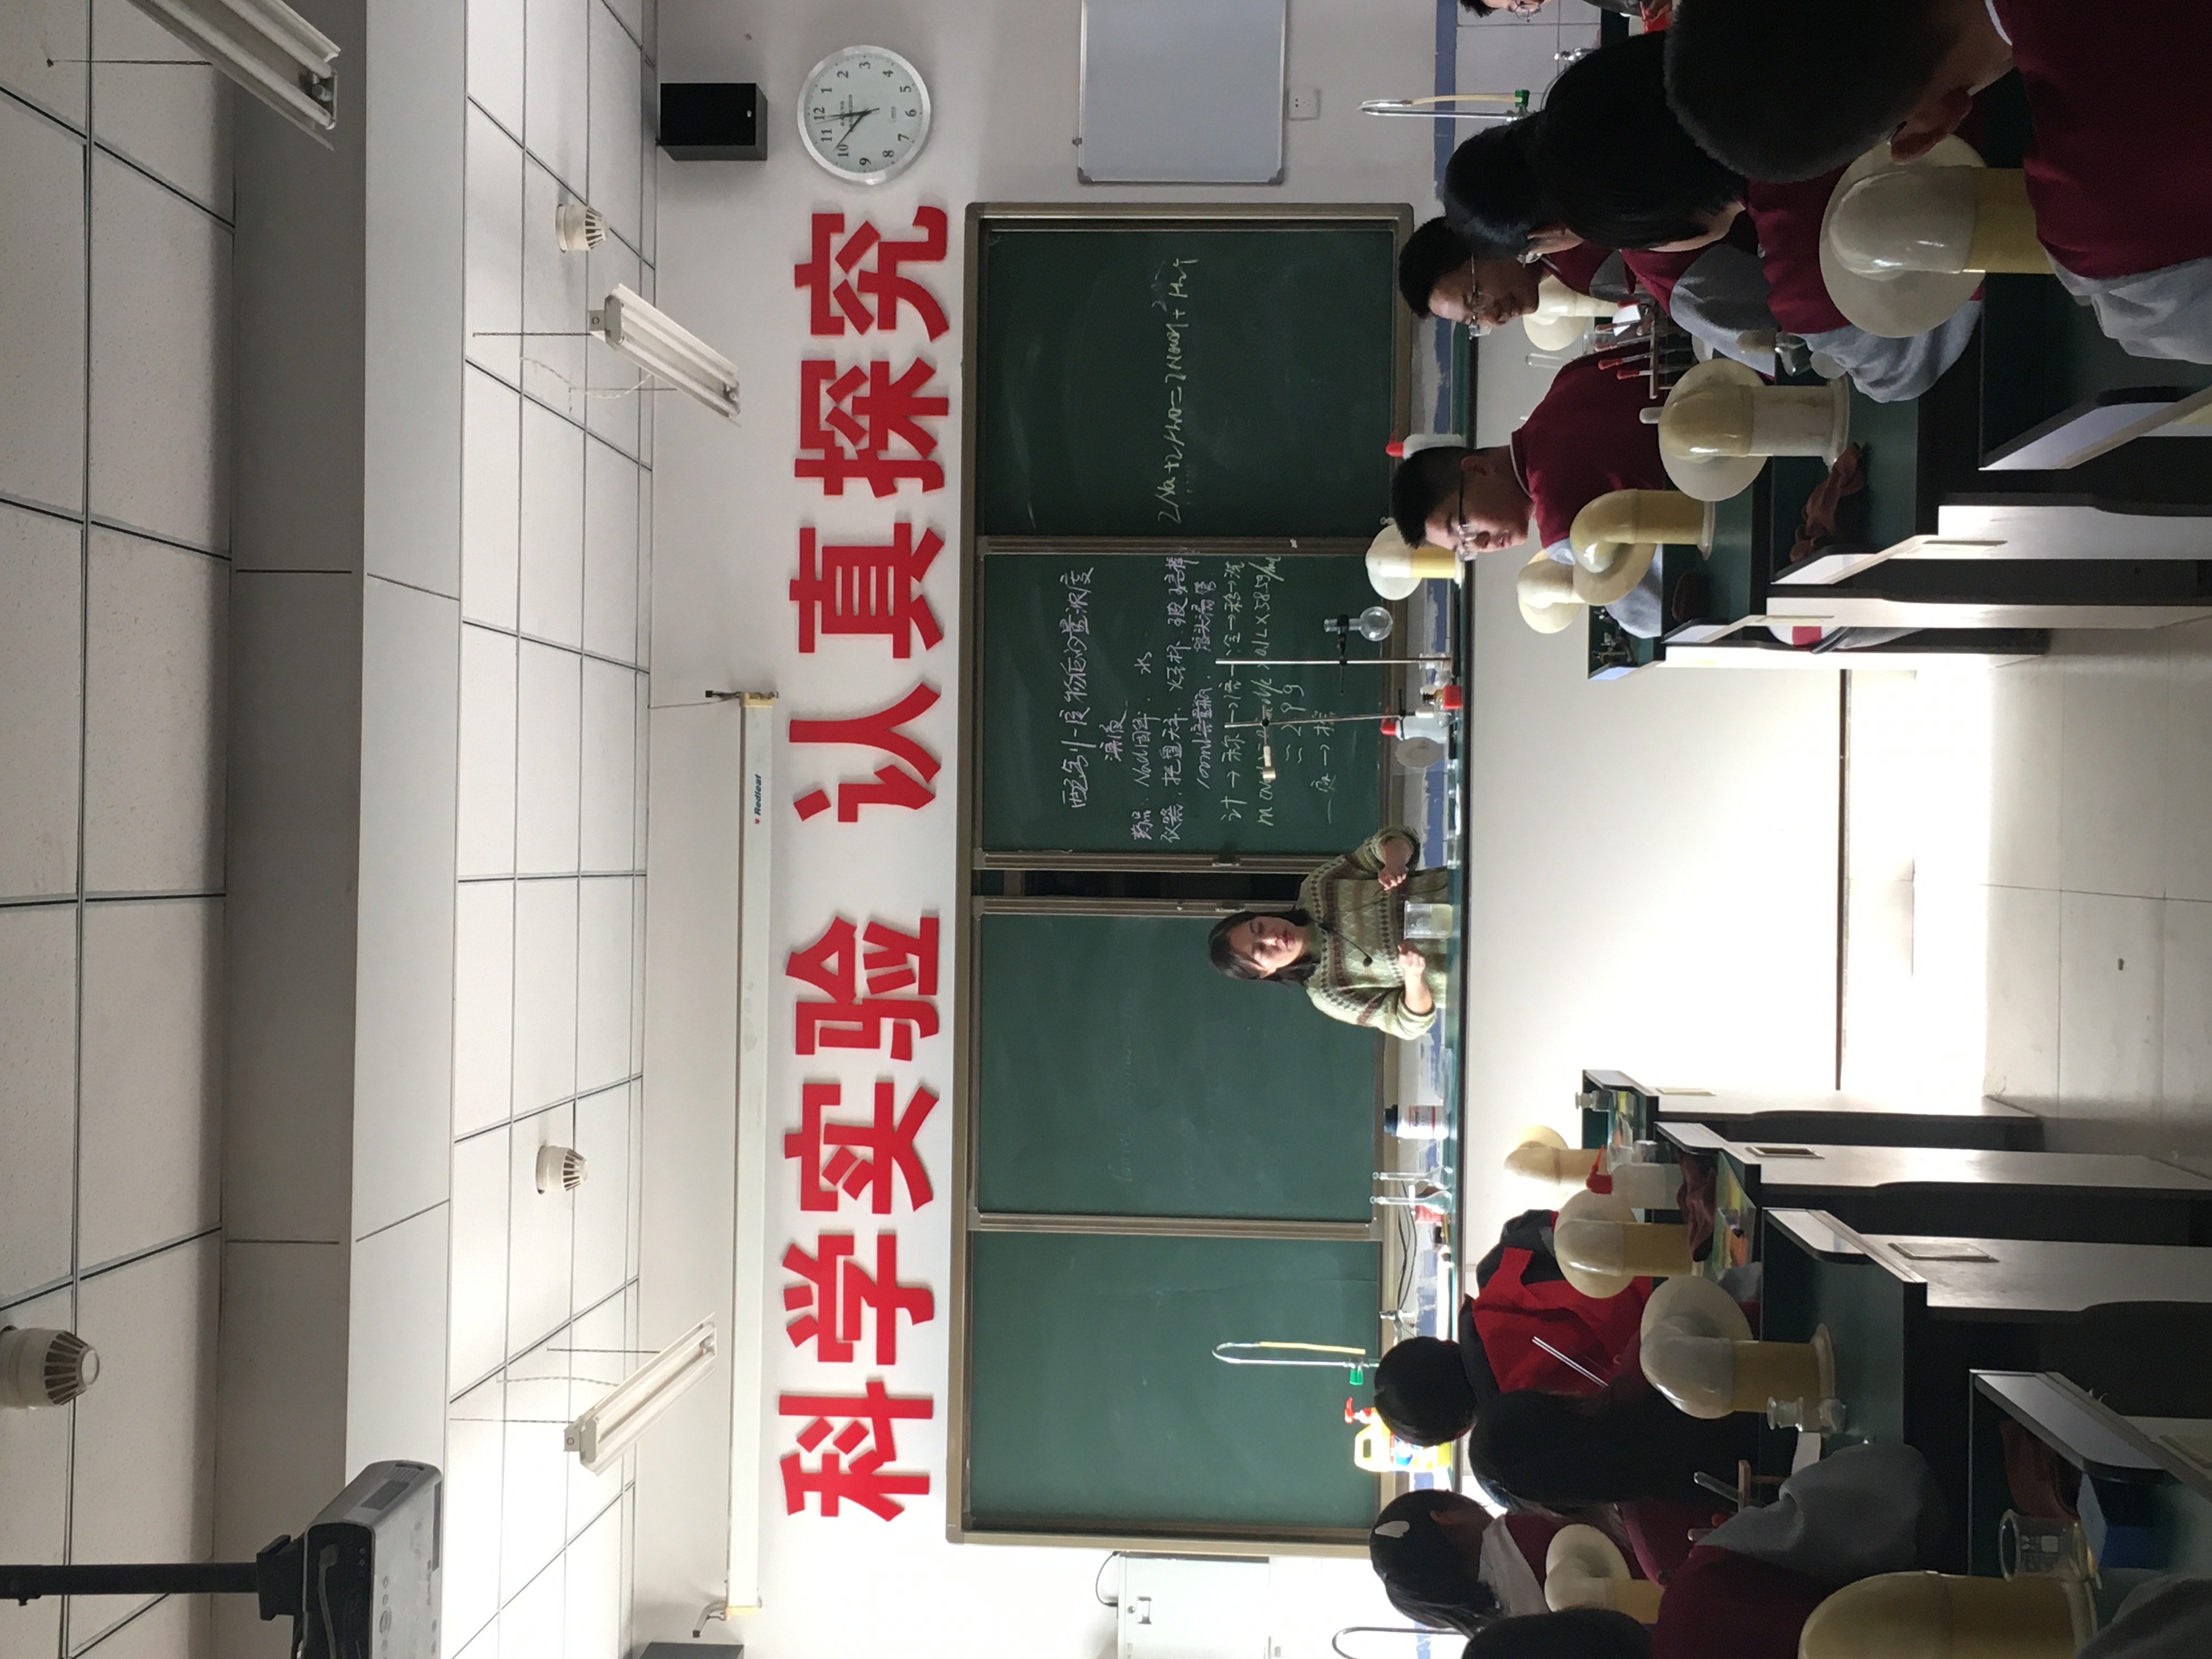 科学实验 认真探究
Redleaf
12
1
2
3
4
5
6
7
8
9
10
11
配制一定物质的量浓度
溶液
药品：NaCl固体、水
仪器：托盘天平、烧杯、玻璃棒
100ml容量瓶、胶头滴管
计→称→溶→冷→移→洗
×0.1L×58.5g/mol
≈2.9g
2Na+2H₂O=2NaOH+H₂↑